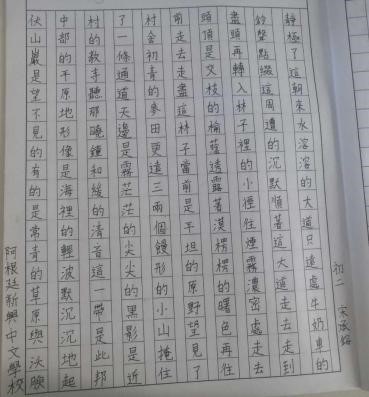 初二 宋
靜極了這朝來水溶溶的大道只遠處牛奶車的
鈴聲點綴這周遭的沉默順著這大道走去走到
盡頭再轉入林子裡的小徑往煙霧濃密處走去
頭頂是交枝的榆蔭透露著漠楞楞的曙色再往
前走去走盡這林子當前是平坦的原野望見了
村舍初青的麥田更遠三兩個饅形的小山掩住
了一條通道天邊是霧茫茫的尖尖的黑影是近
村的教寺聽那曉鐘和緩的清音這一帶是此邦
中部的平原地形像是海裡的輕波默沉沉地起
伏山巖是望不見的有的是常青的草原與沃腴
阿根廷新興中文學校